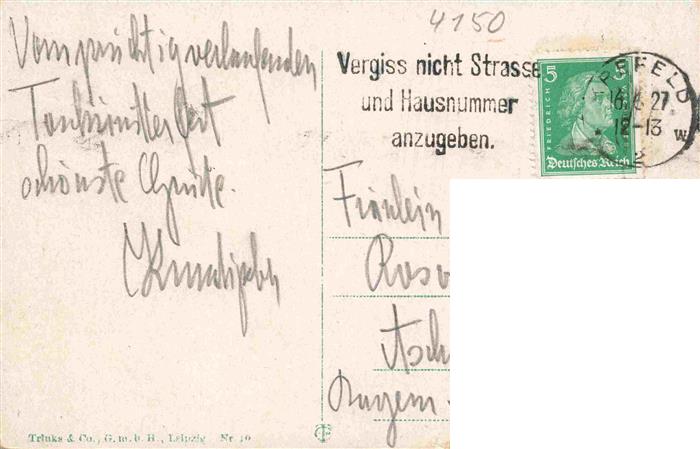 4150
Vom prächtig verlaufenden
schönste Grüße.
Vergiss nicht Strasse
und Hausnummer
anzugeben.
5 5
FRIEDRICH
Deutsches Reich
PEFELD
16.6.27
12-13
W
2
Fräulein
Rosa
Asch
Trinks & Co., G. m. b. H., Leipzig Nr. 10